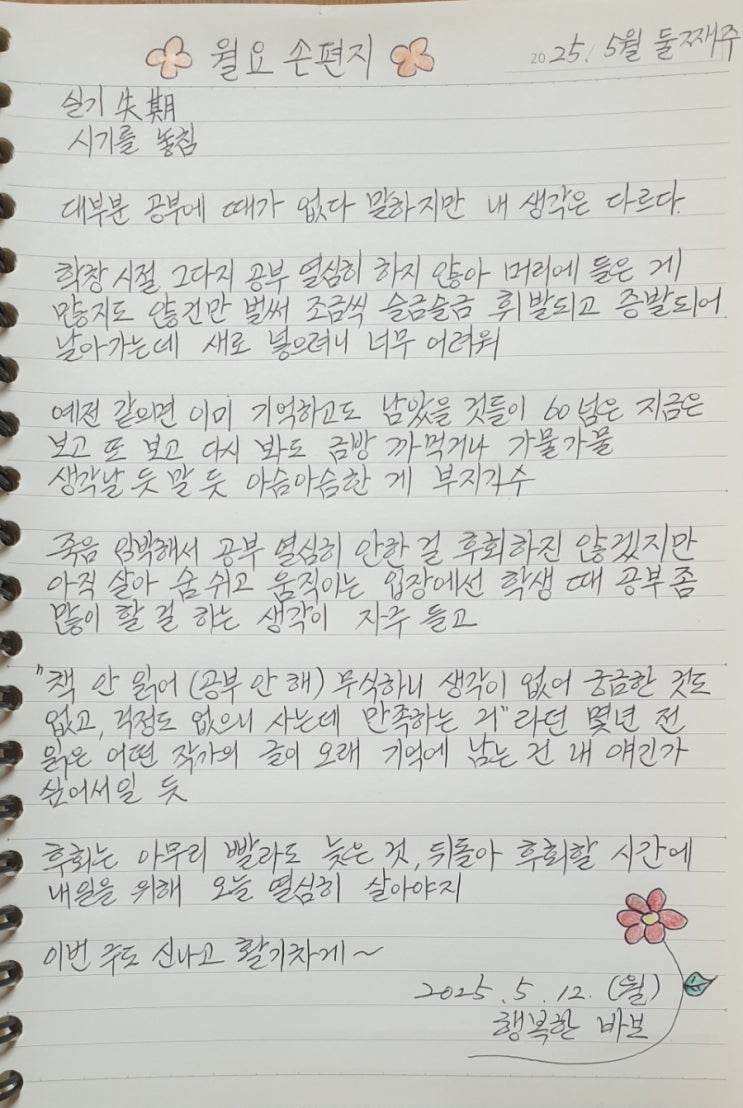 월요 손편지
2025. 5월 둘째주
실기 失期
시기를 놓침
대부분 공부에 때가 없다 말하지만 내 생각은 다르다.
학창 시절 그다지 공부 열심히 하지 않아 머리에 들은 게
많지도 않건만 벌써 조금씩 슬금슬금 휘발되고 증발되어
날아가는데 새로 넣으려니 너무 어려워
예전 같으면 이미 기억하고도 남았을 것들이 60 넘은 지금은
보고 또 보고 다시 봐도 금방 까먹거나 가물가물
생각날 듯 말 듯 아슴아슴한 게 부지기수
죽음 임박해서 공부 열심히 안한 걸 후회하진 않겠지만
아직 살아 숨 쉬고 움직이는 입장에선 학생 때 공부 좀
많이 할 걸 하는 생각이 자주 들고
"책 안 읽어 (공부 안 해) 무식하니 생각이 없어 궁금한 것도
없고, 걱정도 없으니 사는데 만족하는 거" 라던 몇년 전
읽은 어떤 작가의 글이 오래 기억에 남는 건 내 얘긴가
싶어서일 듯
후회는 아무리 빨라도 늦은 것, 뒤돌아 후회할 시간에
내일을 위해 오늘 열심히 살아야지
이번 주도 신나고 활기차게~
2025. 5. 12. (월)
행복한 바보